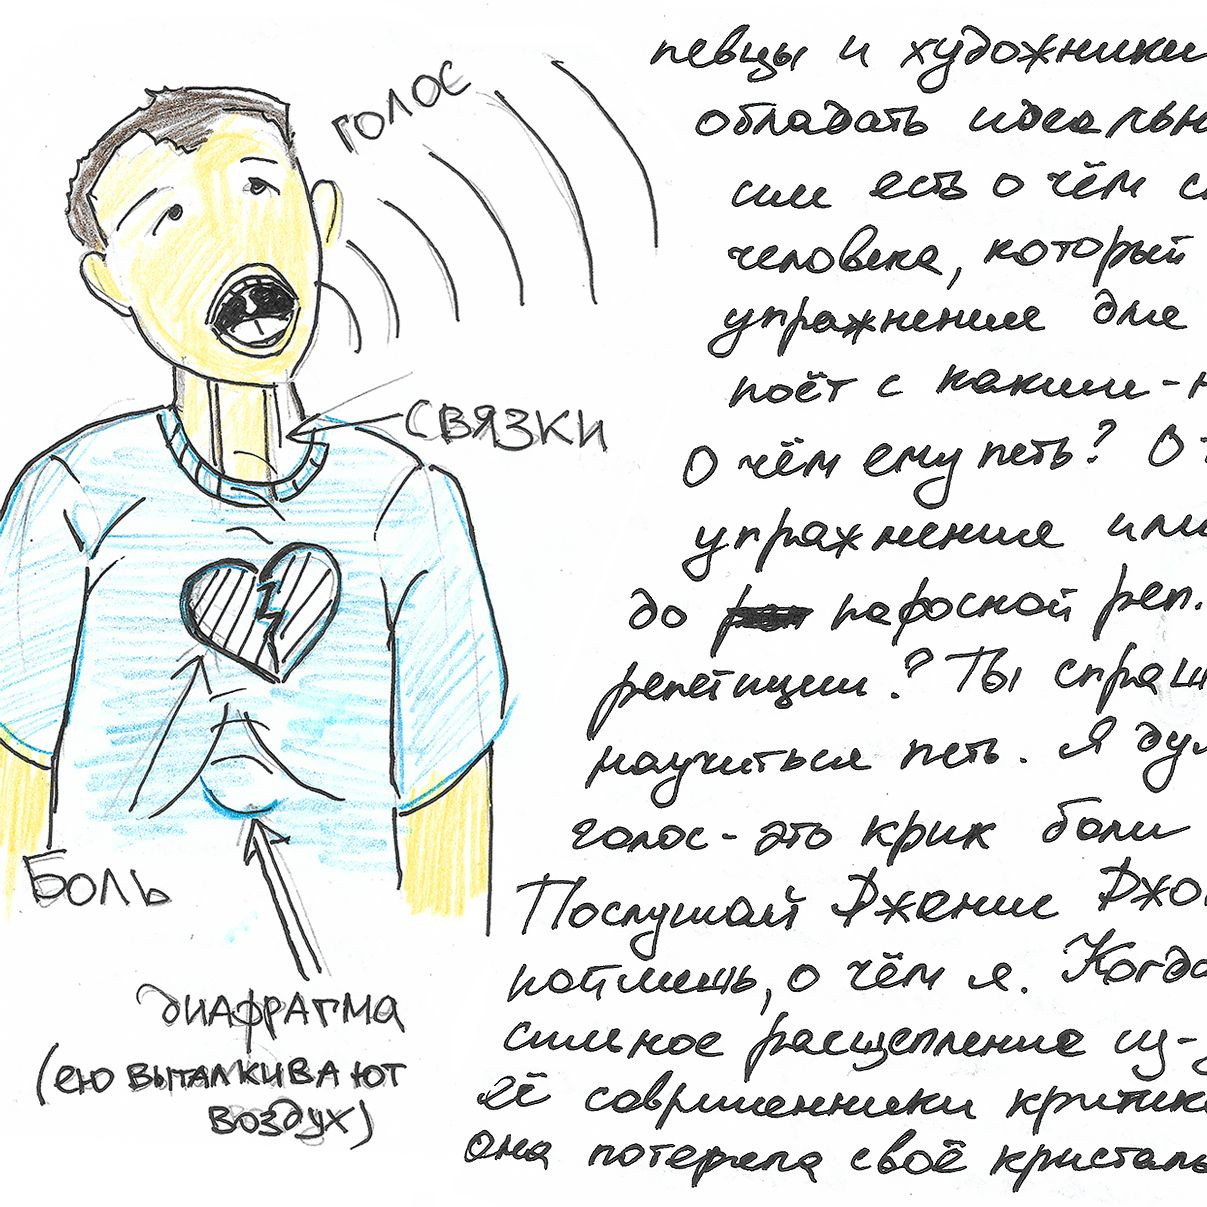 голос
связки
Боль
диафрагма
(ею выталкивают
воздух)
певцы и художники
обладать идеальн
им есть о чём с
человека, который
упражнения для
поёт с каким-н
О чём ему петь? О
упражнения или
до пафосной реп.
репетиции? Ты спраш
научиться петь. Я дум
голос - это крик боли
Послушай Дженис Джо
поймешь, о чём я. Когда
сильное расщепление из-
её современники критико
она потеряла своё кристаль